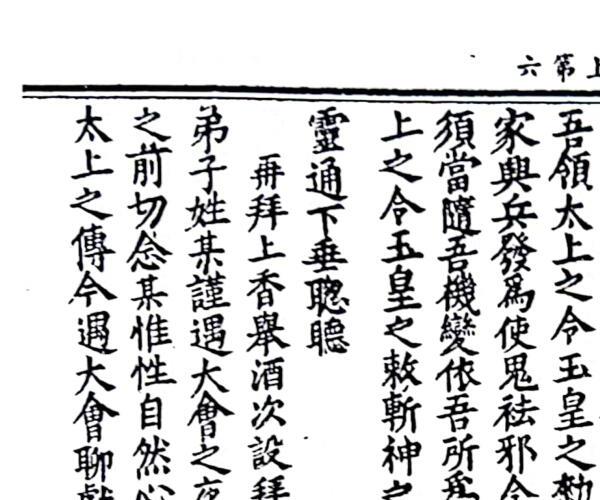 上第六
吾領太上之令玉皇之勑
家興兵發爲使鬼祛邪令
須當隨吾機變依吾所爲
上之令玉皇之敕斬神之
靈通下垂聦聽
再拜上香舉酒次設拜
弟子姓某謹遇大會之夜
之前切念某惟性自然心
太上之傳今遇大會聊獻